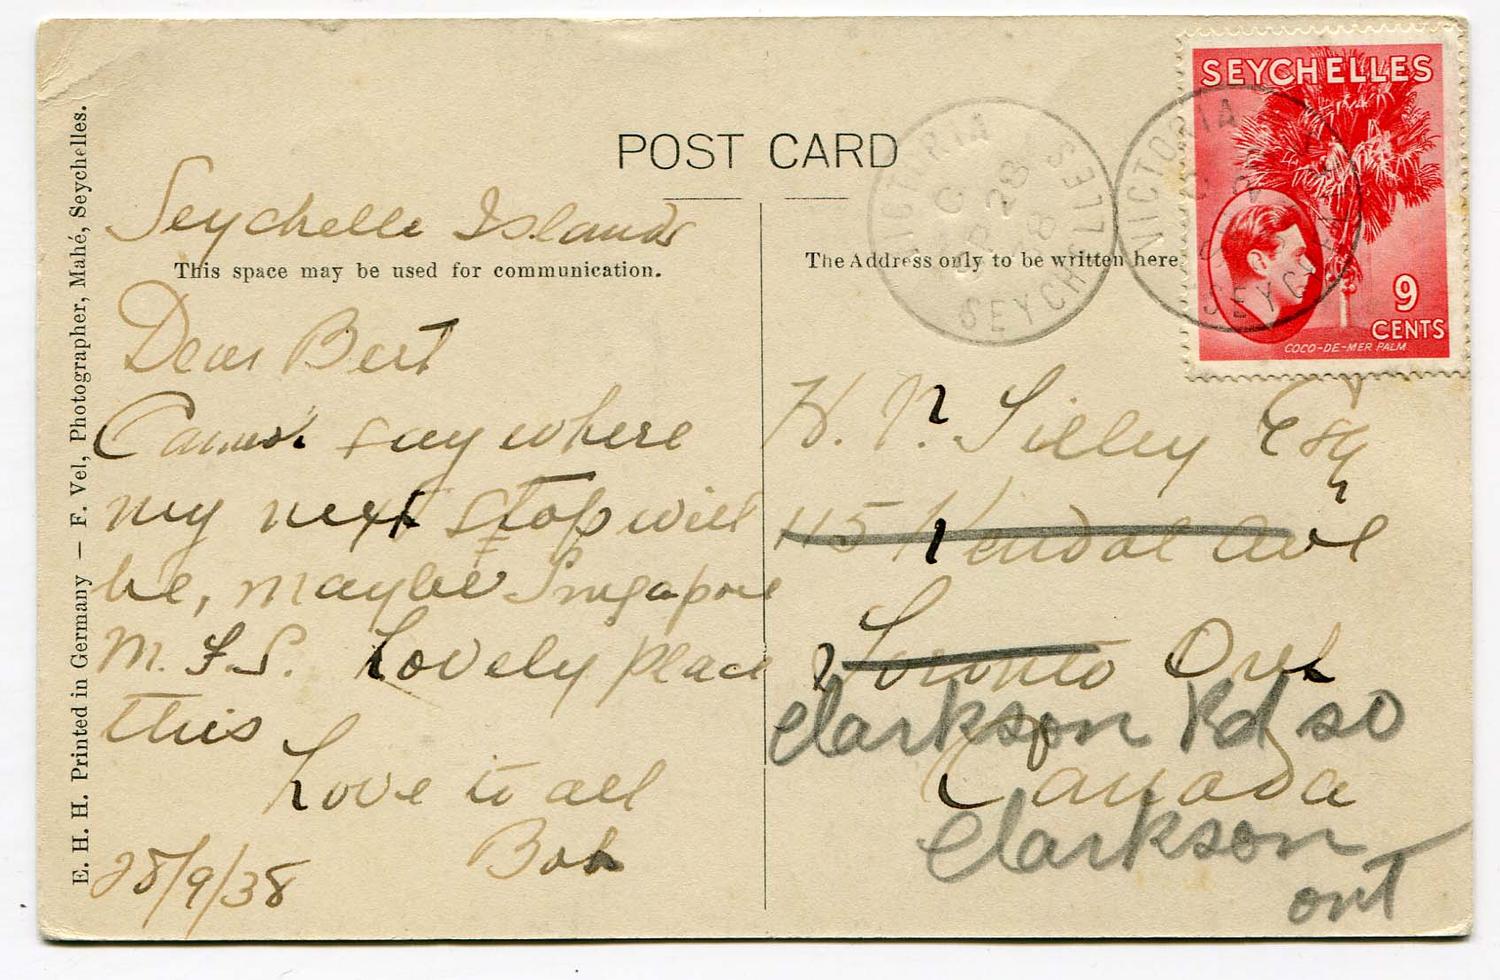 POST CARD
Seychelle Islands
This space may be used for communication.
Dear Bert
Cannot say where
my next stop will
be, maybe Singapore
M.F.S. Lovely place
this
Love to all
Bob
28/9/38
E. H. H. Printed in Germany — F. Vel, Photographer, Mahé, Seychelles.
The Address only to be written here
SEYCHELLES
9
CENTS
COCO-DE-MER PALM
VICTORIA
C
28
SP
38
SEYCHELLES
VICTORIA
SEYCHELLES
H. N. Lilley Esq
115 Kendal Ave
Toronto Ont
Clarkson Rd so
Canada
Clarkson
ont